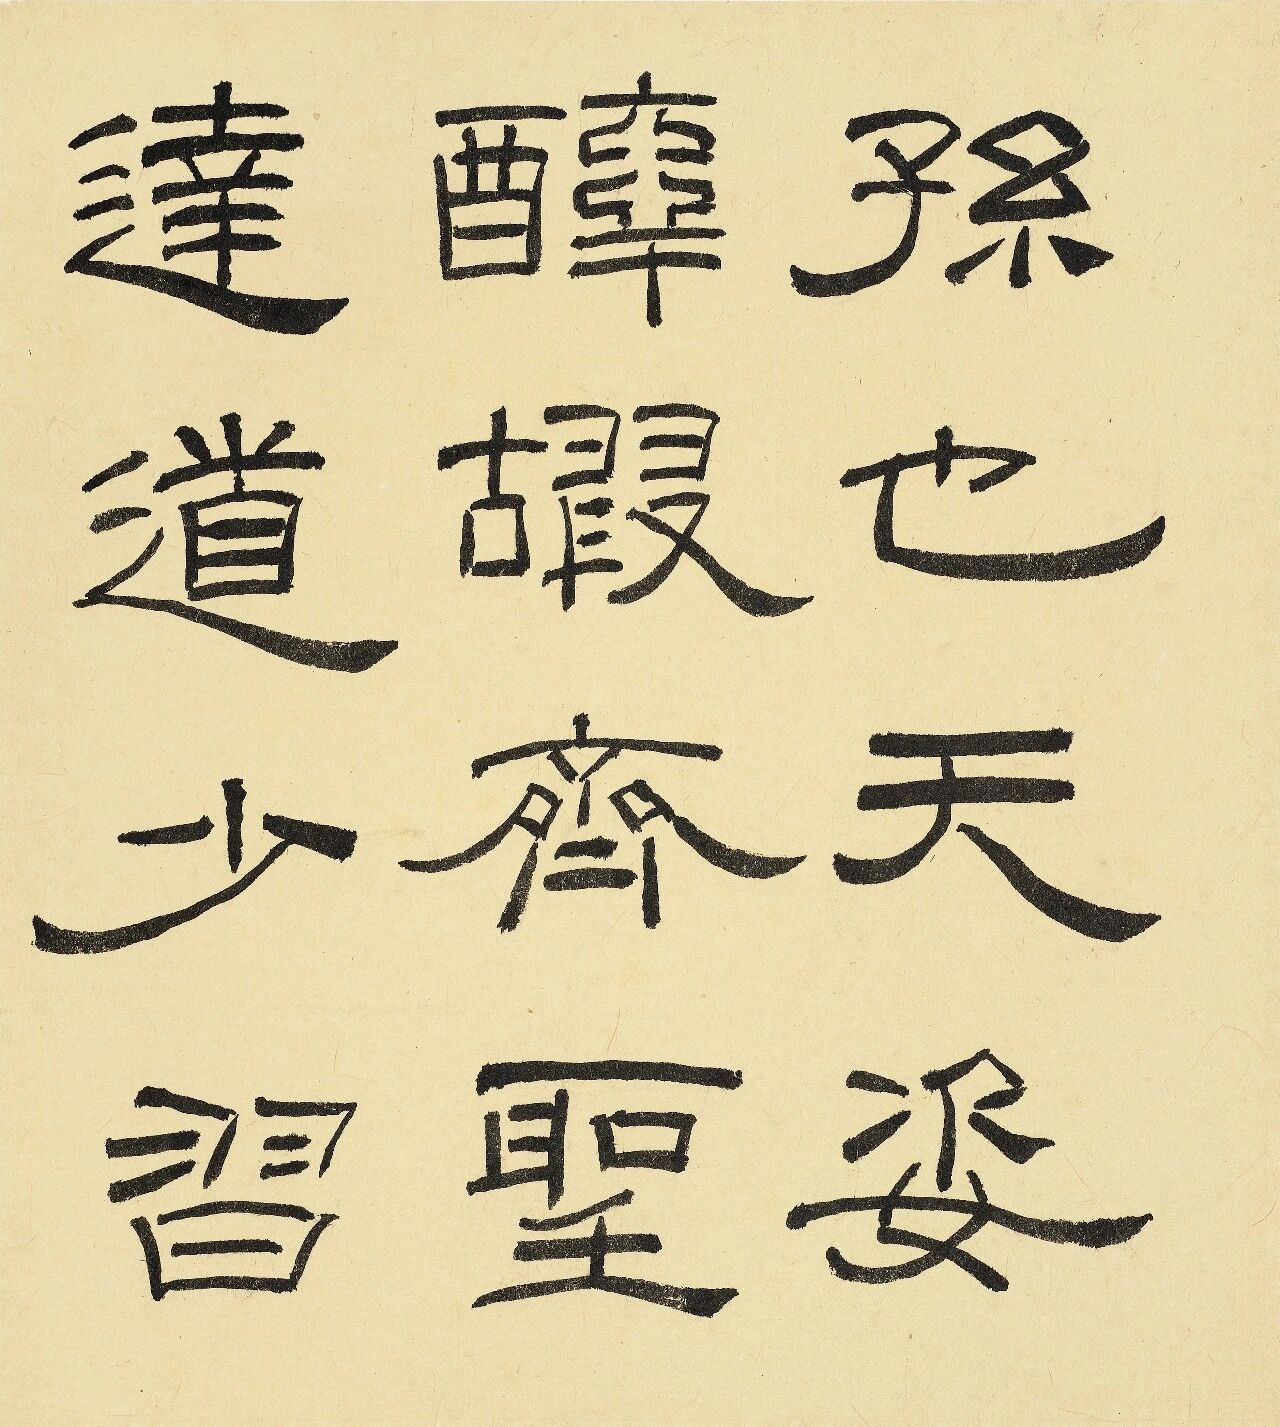 孫也天姿
醇嘏齊聖
達道少習